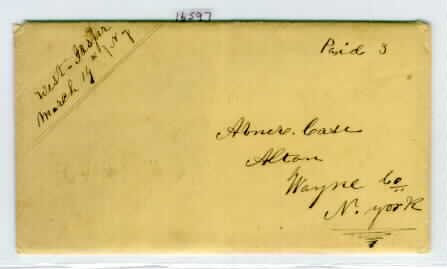 16597
West-Jasper
March 19th N.Y
Paid 3
Abner. Case
Alton
Wayne Co
N. York